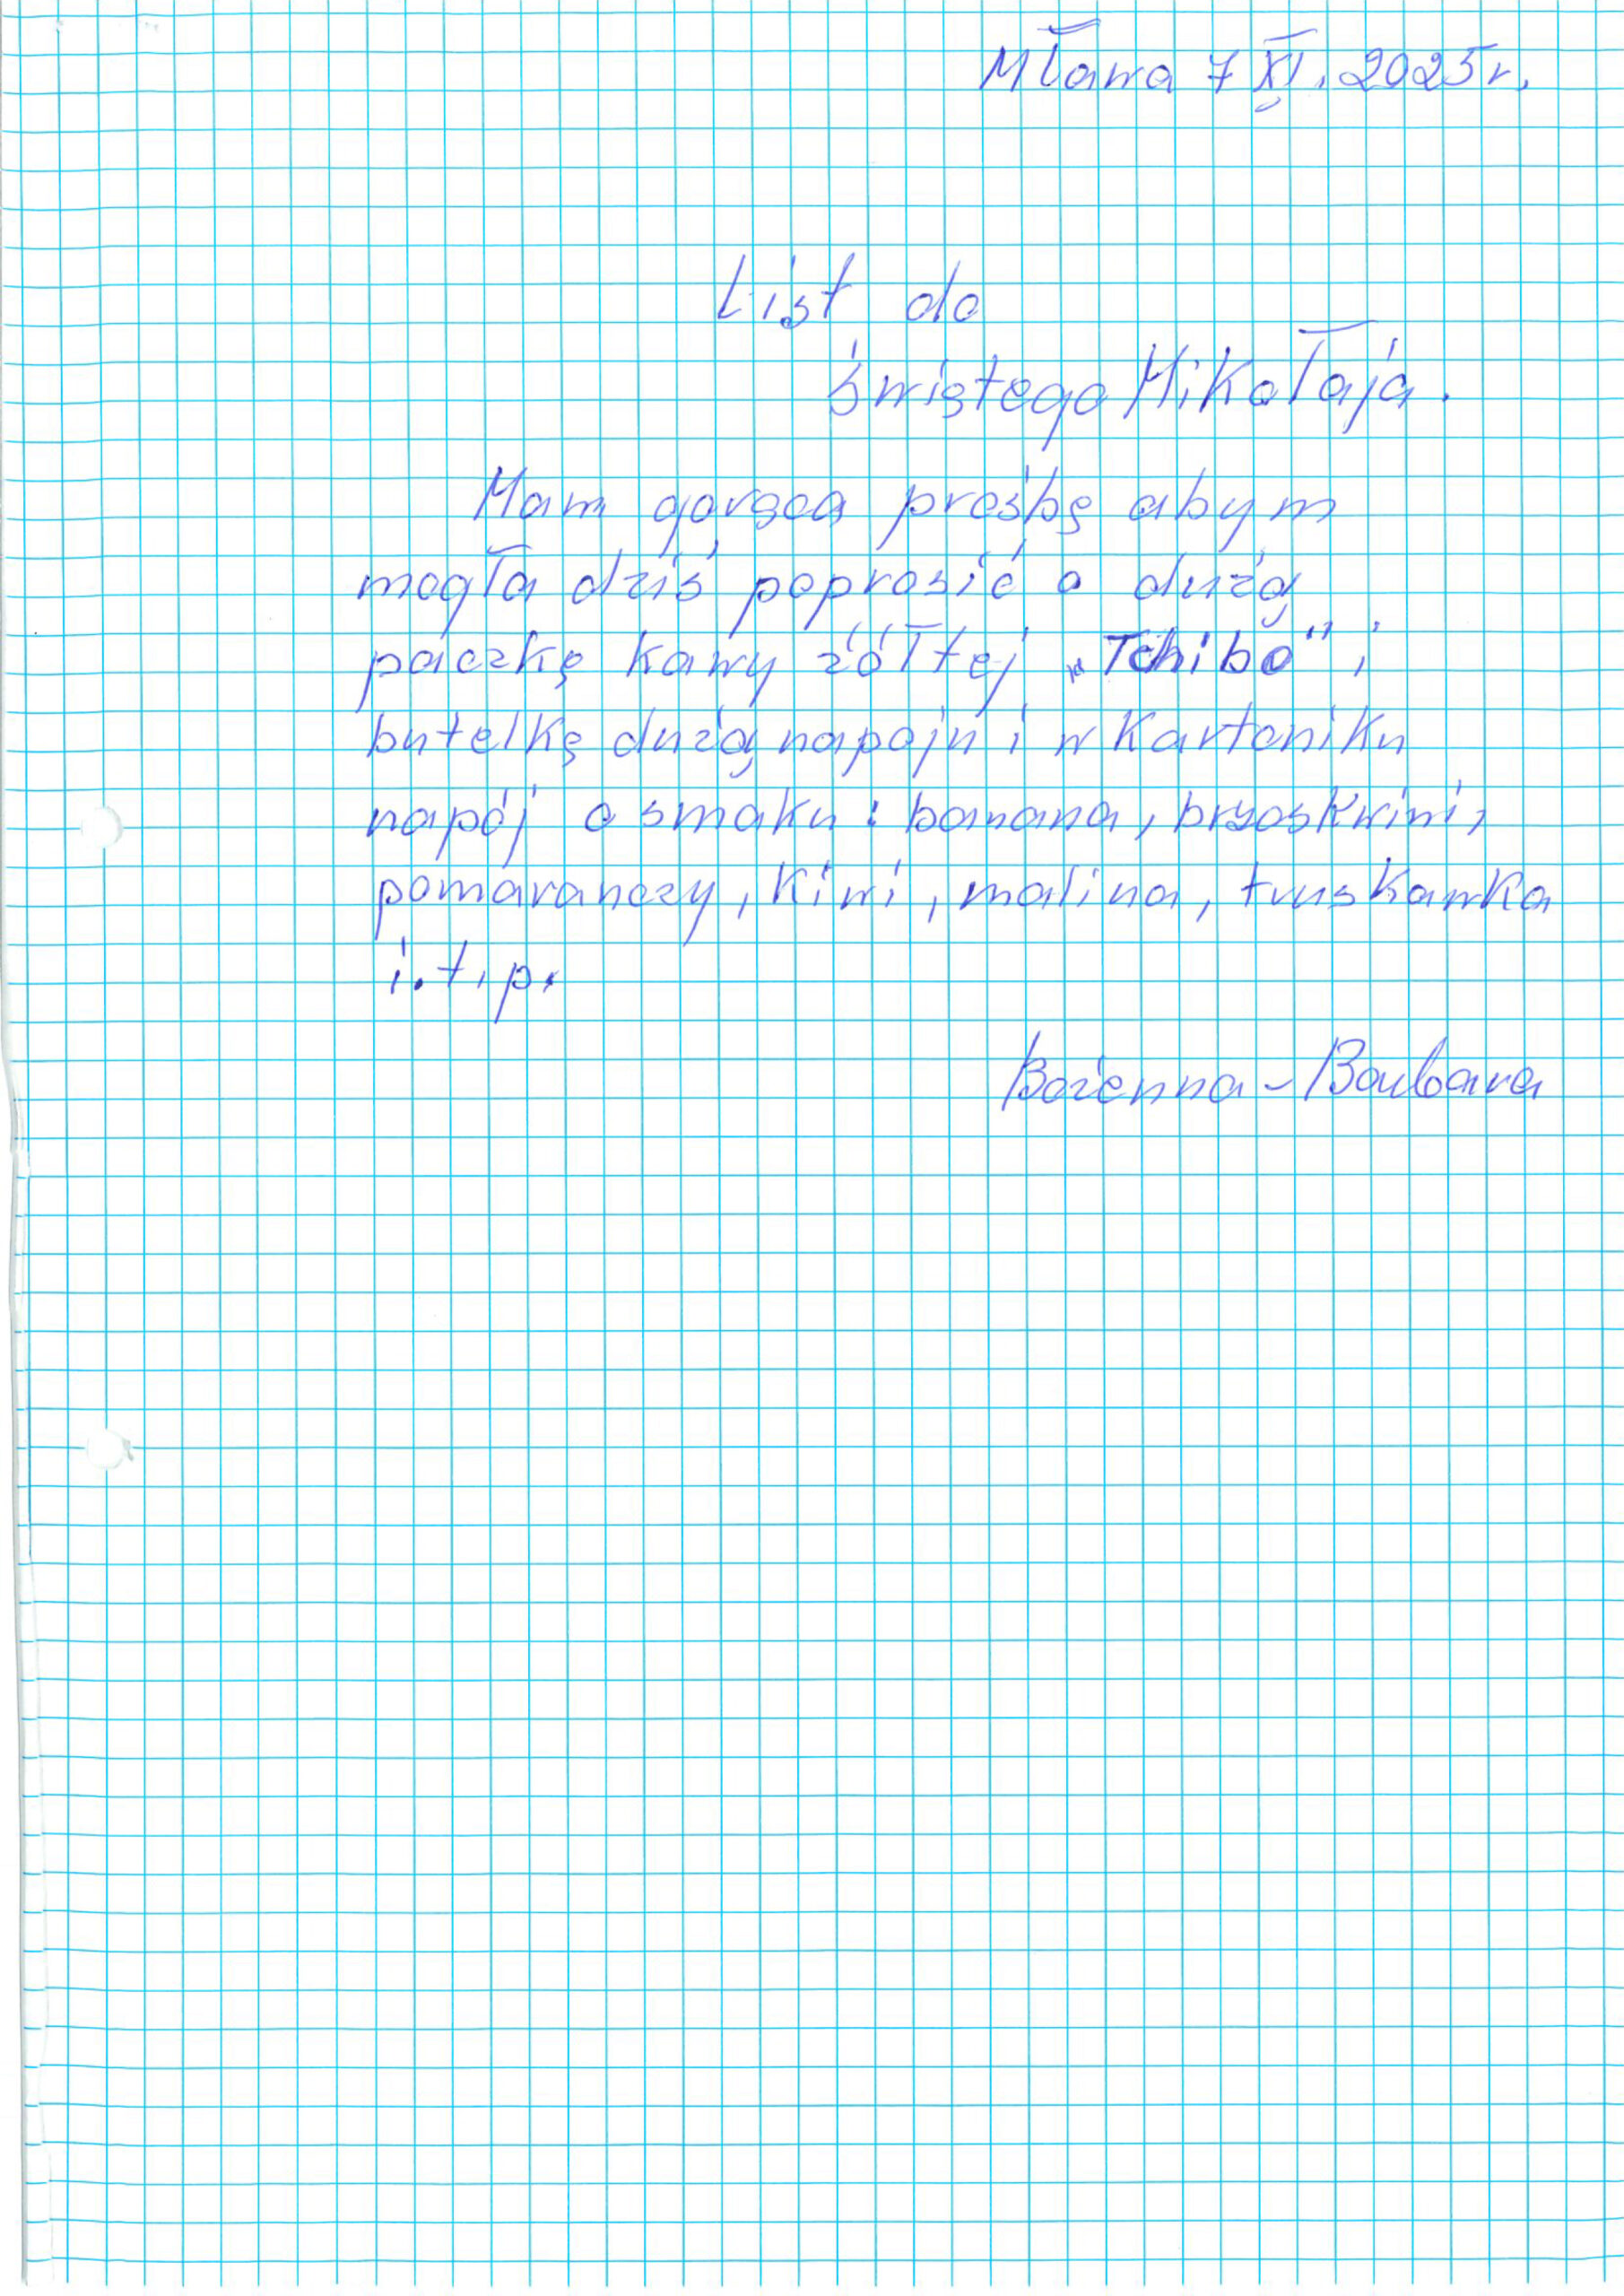 Mława 7 XI. 2025 r.
List do
świętego Mikołaja.
Mam gorącą prośbę abym
mogła dziś poprosić o dużą
paczkę kawy żółtej „Tchibo" i
butelkę dużą napoju i w kartoniku
napój o smaku: banana, brzoskwini,
pomarańczy, kiwi, malina, truskawka
i.t.p.
Bożenna - Barbara